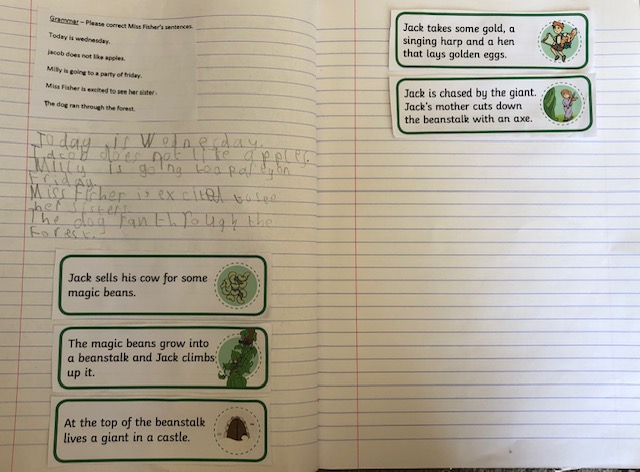 Grammar – Please correct Miss Fisher's sentences.
Today is wednesday.
jacob does not like apples.
Milly is going to a party of friday.
Miss Fisher is excited to see her sister
The dog ran through the forest.
Today is Wednesday.
Jacob does not like apples.
Milly is going to a party on
Friday.
Miss Fisher is excited to see
her sister.
The dog ran through the
Forest.
Jack sells his cow for some
magic beans.
The magic beans grow into
a beanstalk and Jack climbs
up it.
At the top of the beanstalk
lives a giant in a castle.
Jack takes some gold, a
singing harp and a hen
that lays golden eggs.
Jack is chased by the giant.
Jack's mother cuts down
the beanstalk with an axe.